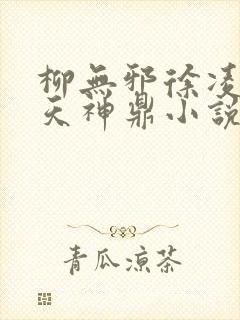 柳無邪徐凌
天神鼎小說
青瓜涼茶